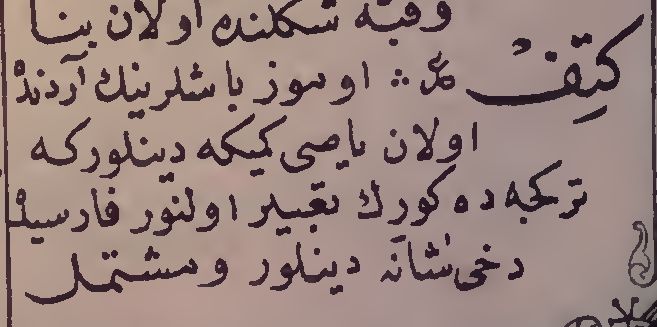 وقبه شكلنده اولان بنا
كَتِفْ ك ⁘ اوموز باشلرينك آردنده
اولان ياصى كميكه دينلوركه
تركجه ده كورك تعبير اولنور فارسيده
دخى شانه دينلور ومشتمل